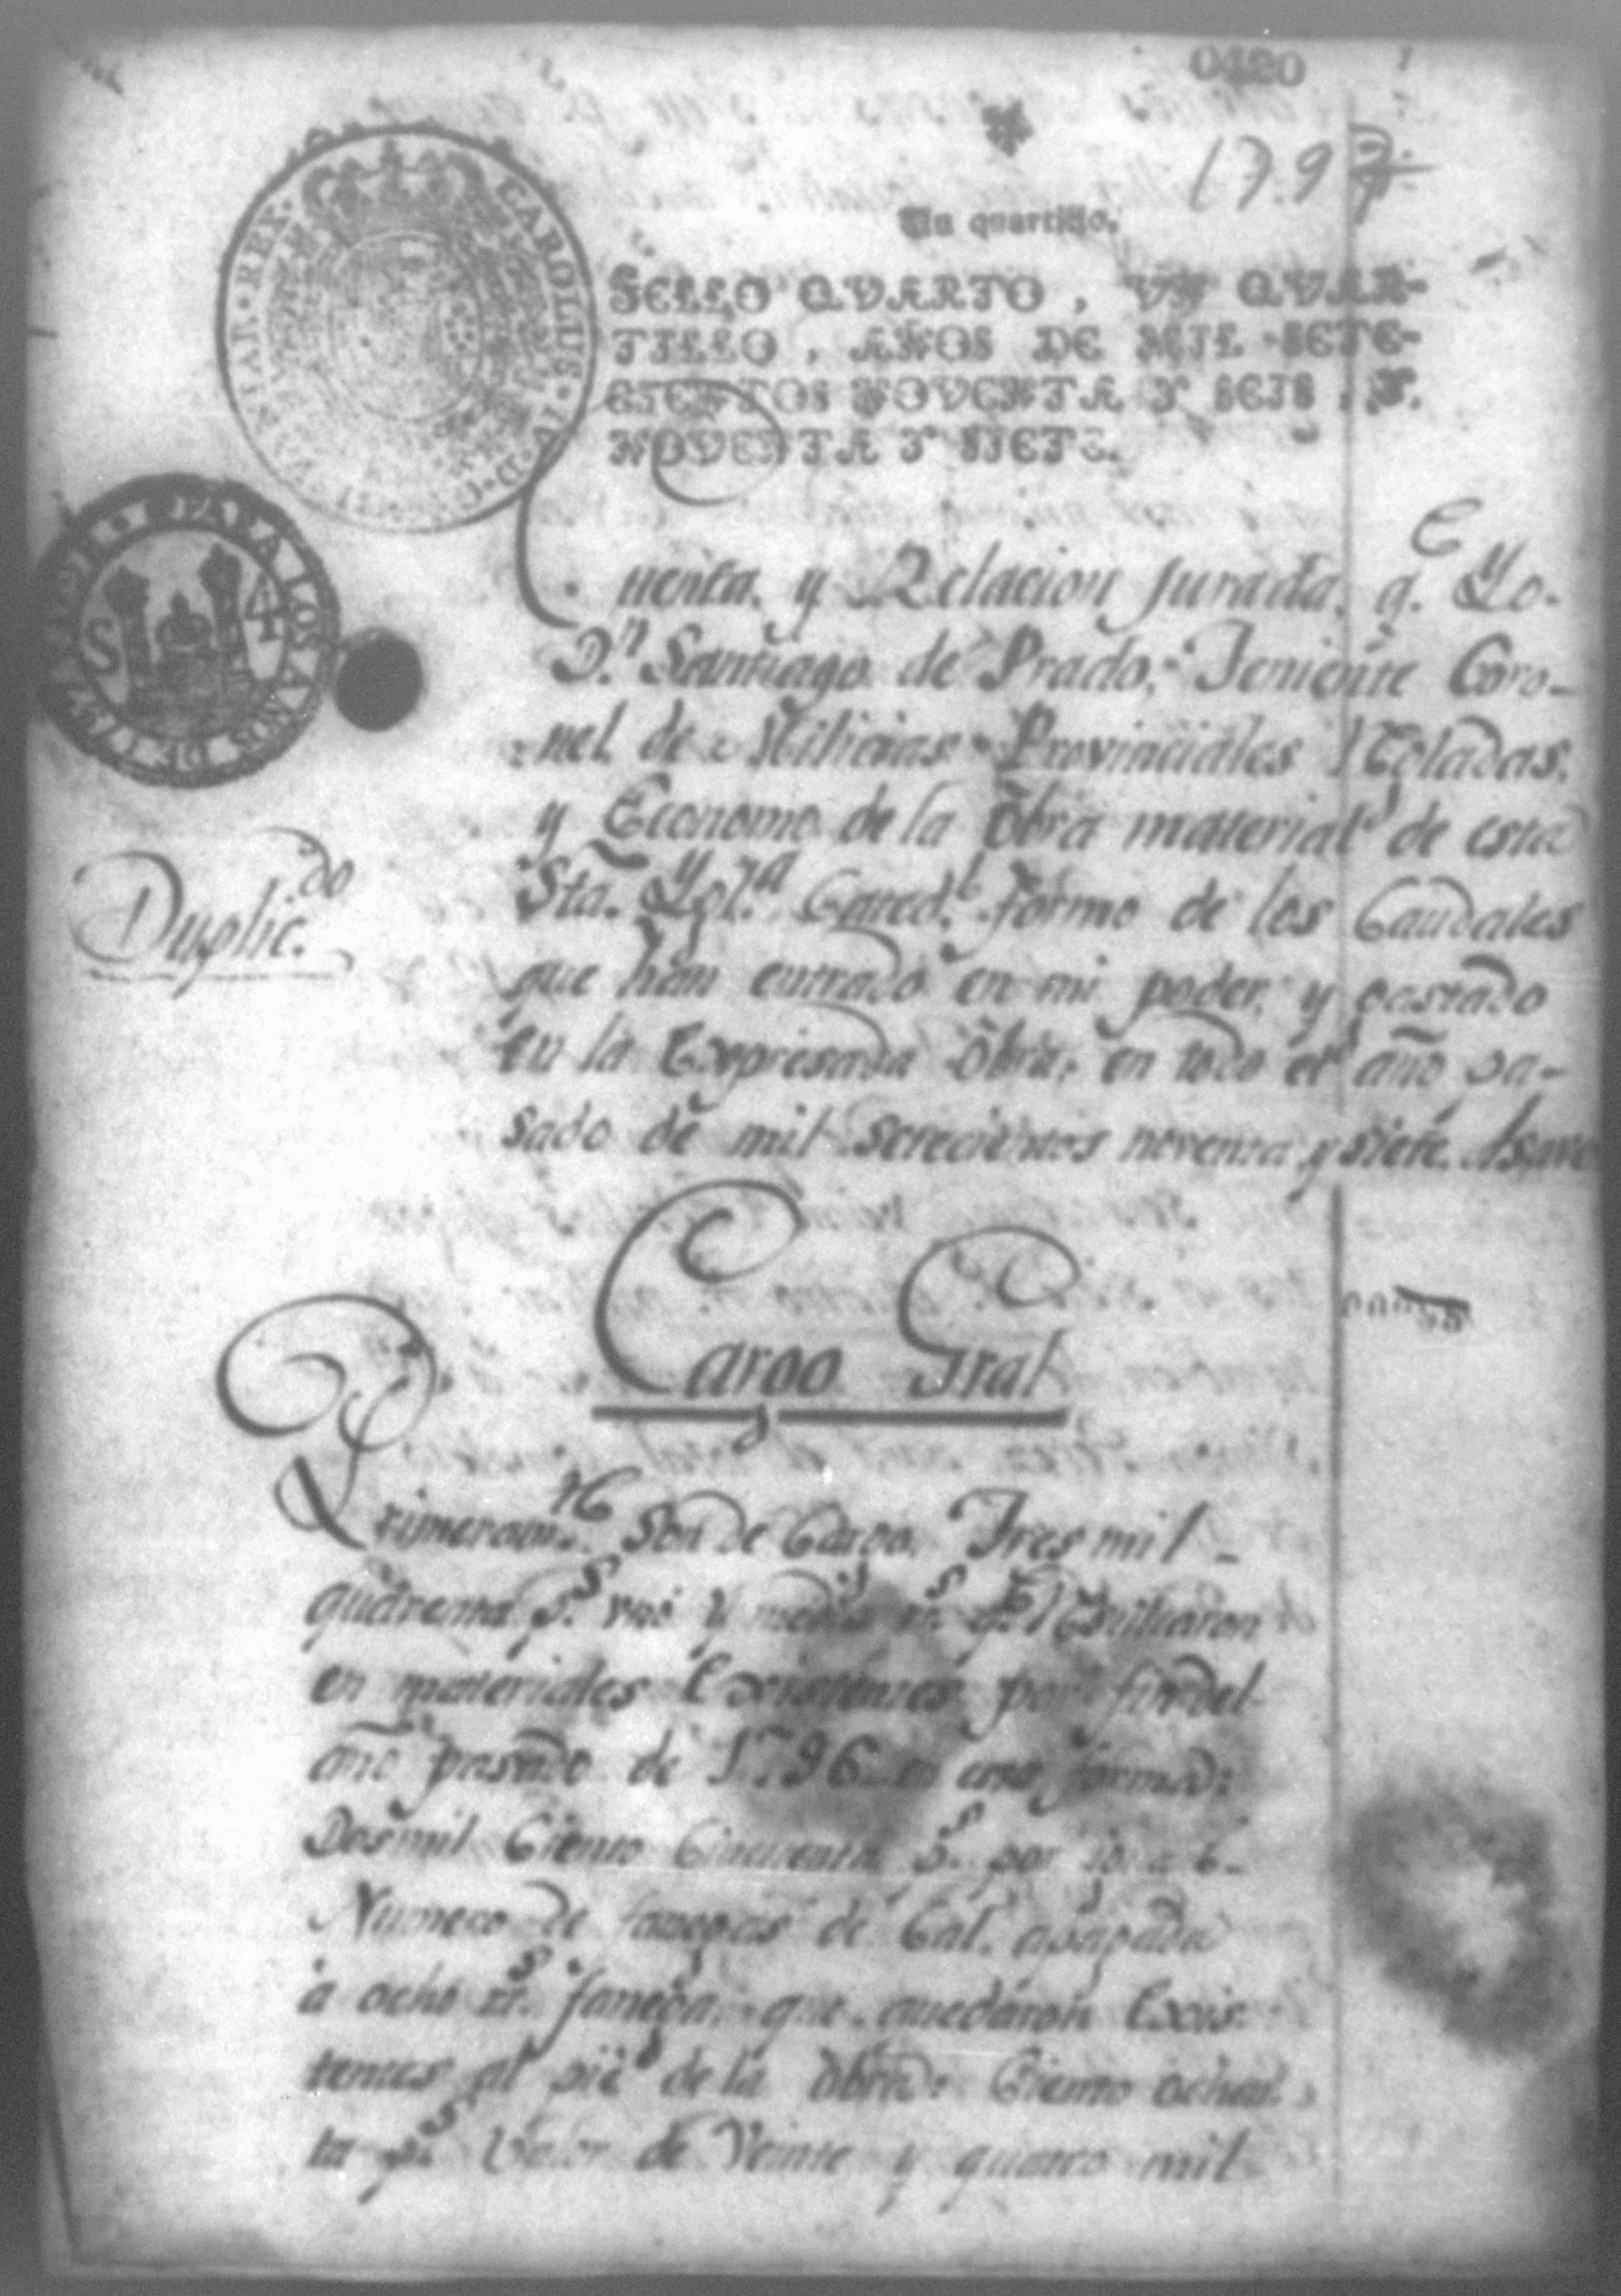 0420
1797
Un quartillo.
SELLO QVARTO, VN QVAR-
TILLO, AÑOS DE MIL SETE-
CIENTOS NOVENTA Y SEIS, Y
NOVENTA Y SIETE.
CAROLUS IV D G HISPANIAR REX
PARA LOS AÑOS DE 1797
S 4
Cuenta, y Relacion Jurada, q.e Yo
D.n Santiago de Prado, Teniente Coro-
nel de Milicias Provinciales
y Economo de la Obra material de esta
Sta. Ygl.a Cated.l formo de los Caudales
que han entrado en mi poder, y gastado
en la Expresada Obra, en todo el año pa-
sado de mil setecientos noventa, y siete. Asaver
Duplic.do
Cargo Gral
Primeram.te son de Cargo, Tres mil
quarenta p.s uno y medio r.s q.e
en materiales Existentes por fin del
año pasado de 1796 en esta forma:
Dos mil Ciento Cinquenta p.s por
Numero de fanegas de Cal, apagada
a ocho rr.s fanega, que quedaron Exis-
tentes al pie de la Obra: Ciento ochen-
ta p.s Valor de Veinte y quatro mil